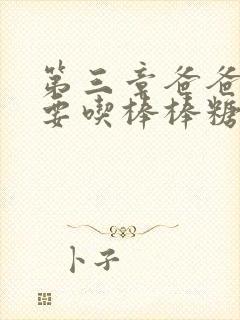 第三章爸爸
要喫棒棒糖
卜子